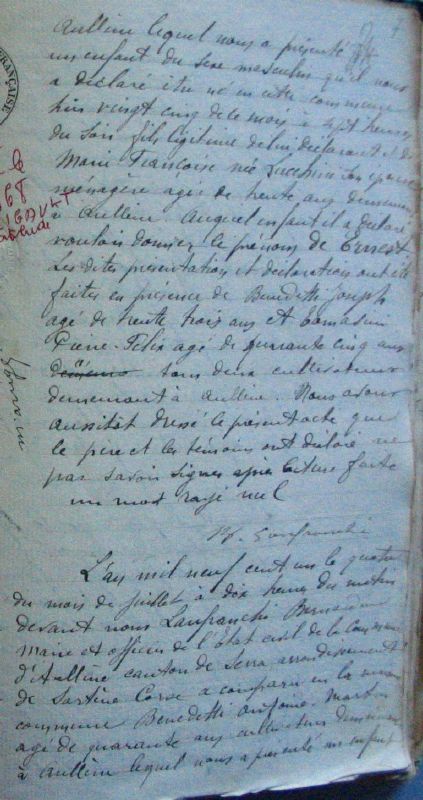 Aullène lequel nous a présenté
un enfant du sexe masculin qu'il nous
a déclaré être né en cette commune
hier vingt cinq de ce mois à sept heures
du soir fils légitime de lui déclarant et de
Marie Françoise née Lucchini son épouse
ménagère agée de trente ans demeurant
à Aullène. Auquel enfant il a déclaré
vouloir donner le prénom de Ernest
Les dites présentation et déclaration ont été
faites en présence de Benedetti Joseph
agé de trente trois ans et Comasini
Pierre Felix agé de quarante cinq ans
tous deux cultivateurs
demeurant à Aullène. Nous avons
aussitôt dressé le présent acte que
le père et les témoins ont déclaré ne
pas savoir signer après lecture faite
un mot rayé nul
Lanfranchi
L'an mil neuf cent un le quatre
du mois de Juillet à dix heures du matin
devant nous Lanfranchi
Maire et officier de l'état civil de la Commune
d'Aullène canton de Serra arrondissement
de Sartène Corse a comparu en la maison
commune Benedetti Antoine Martin
agé de quarante ans cultivateur demeurant
à Aullène lequel nous a présenté un enfant
FRANÇAISE